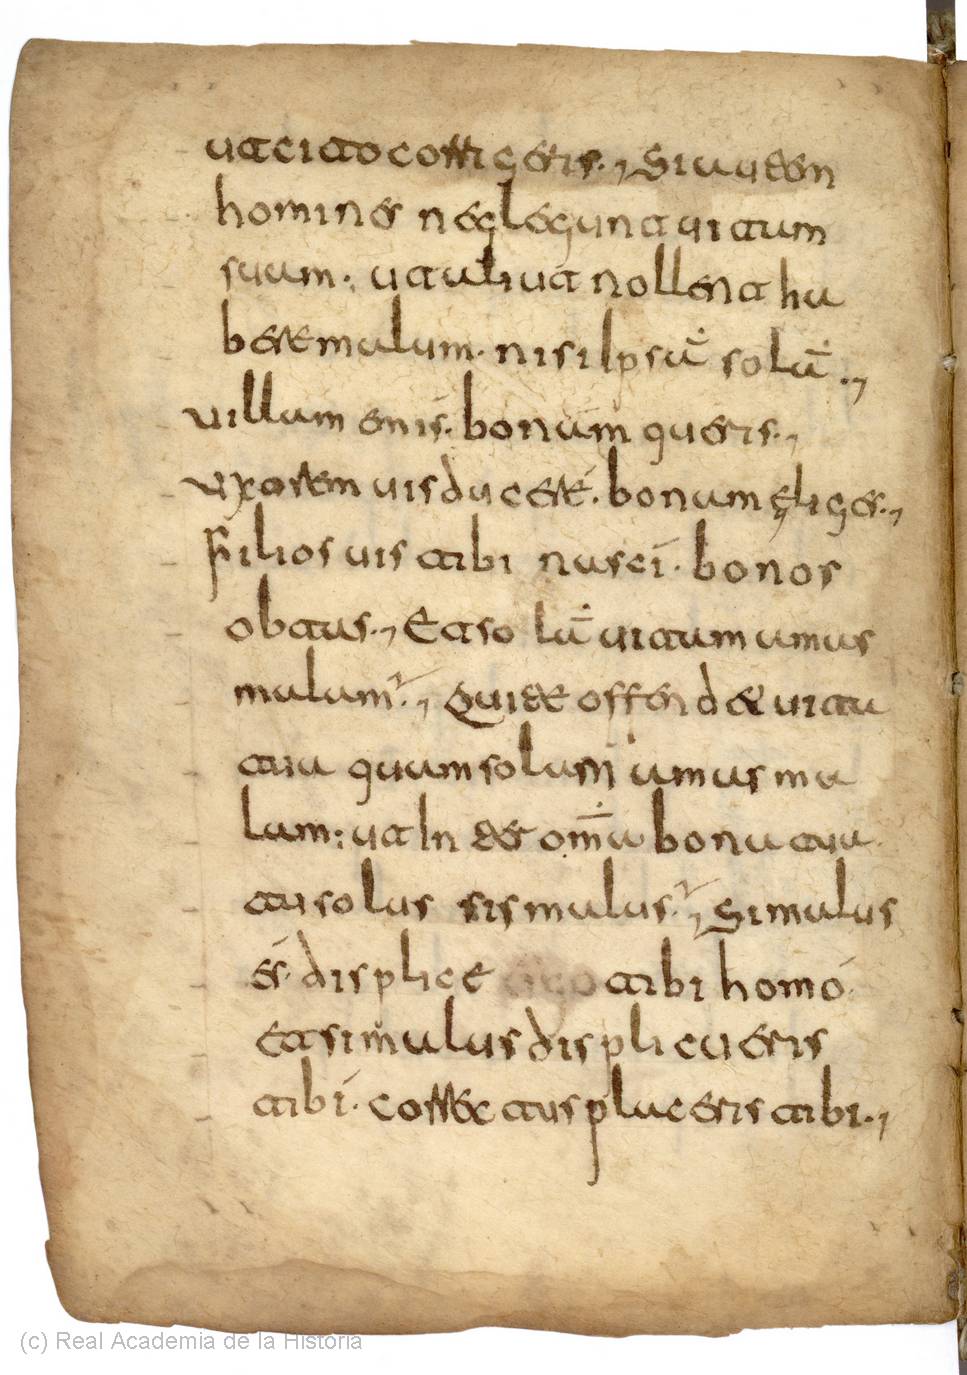 ut cito corrigeris., Si auten
homines neglegunt uitam
suam. ut aliut nollent ha
bere malum. nisi ipsā solā.,
uillam emis. bonam queris.,
uxorem uis ducere. bonam eliges.,
Filios uis tibi nasci. bonos
obtas., Et solā uitam amas
malam., Quid te offendet uita
tua quam solam amas ma
lam: ut Inter om̅a bona tua.
tu solus sis malus., Si malus
es. displice tibi homo.
et si malus displicueris
tibi. correctus placeris tibi.,
(c) Real Academia de la Historia